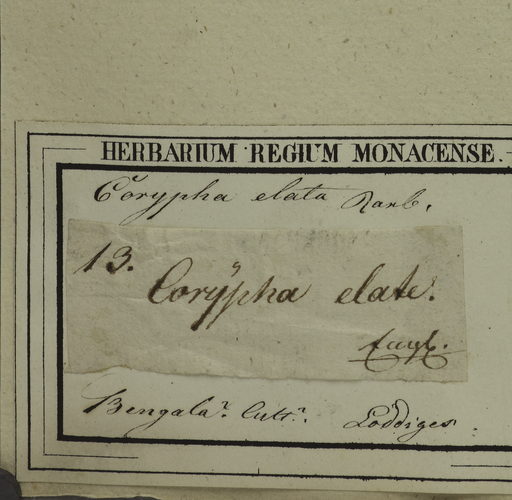 HERBARIUM REGIUM MONACENSE.
Corypha elata Roxb.
13.
Corÿpha elate.
Bengala. Cult. Loddiges.